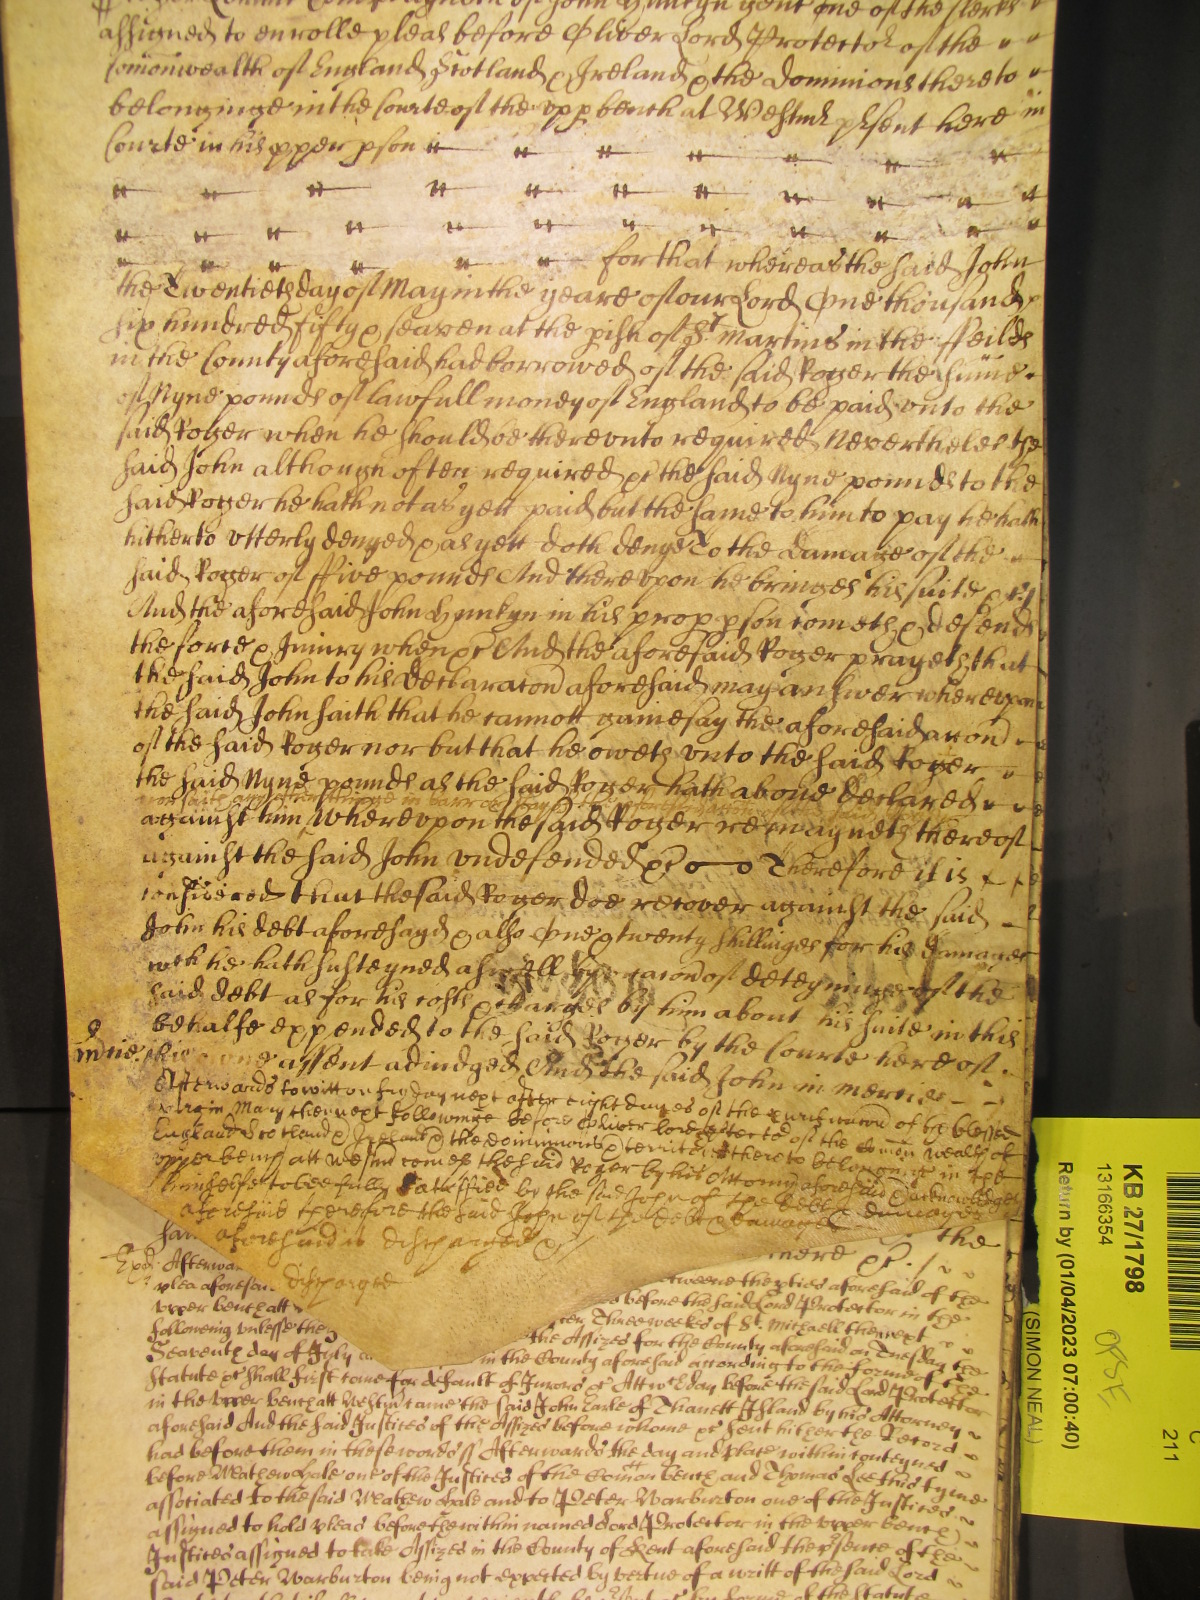 assigned to enrolle pleas before Oliver Lord Protector of the
Comonwealth of England Scotland & Ireland & the dominions thereto
belonginge in the Courte of the upp bench at Westmr psent here in
Courte in his pper pson
for that whereas the said John
the Twentieth day of May in the yeare of our Lord One thousand
six hundred fifty & seaven at the pish of St Martins in the ffeilds
in the County aforesaid had borrowed of the said Roger the sume
of Nyne pounds of lawfull money of England to be paid vnto the
said Roger when he should be therevnto required Neverthelesse the
said John although often required &c the said Nyne pounds to the
said Roger he hath not as yett paid but the same to him to pay he hath
hitherto vtterly denyed & as yett doth denye To the damage of the
said Roger of ffive pounds And therevpon he bringes his suite &c
And the aforesaid John Hynkyn in his prop pson cometh & defends
the force & Iniury when &c And the aforesaid Roger prayeth that
the said John to his declaracon aforesaid may answer wherevpon
the said John saith that he cannott gainesay the aforesaid accon
of the said Roger nor but that he oweth vnto the said Roger
the said Nyne pounds as the said Roger hath above declared
against him Wherevpon the said Roger remayneth thereof
against the said John vndefended &c Therefore it is
considered that the said Roger doe recover against the said
John his debt aforesayd & also One & twenty shillinges for his damages
wch he hath susteyned aswell by reason of deteyninge of the
said debt as for his costs & charges by him about his suite in this
behalfe expended to the said Roger by the Courte here of
mcie. his owne assent adiudged And the said John in mercie
Afterwards to witt on fryday next after eight dayes of the purificacon of the blessed
virgin Mary then next followinge before Oliver lord Protector of the Comon wealth of
England Scotland & Ireland & the dominions & territories thereto belonginge in the
vpper bench att Westmr comes the said Roger by his Attorny aforesaid & acknowledges
himselfe to bee fully satisfied by the said John of the debt & damages
aforesaid therefore the said John of the debt & damages
aforesaid is discharged &c
discharged
the
Afterwar
plea aforesai tweene the pties aforesaid of the
vpper bench att before the said Lord Protector in the
following vnlesse the Three weekes of St. Michaell then next
Seaventh day of July the Assizes for the County aforesaid on Tuesday the
in the County aforesaid according to the forme of the
Statute &c shall first come for default of Jurors &c Att wch day before the said Lord Protector
in the Vpper bench att Westmr came the said John Earle of Thanett Island by his Attorney
aforesaid And the said Justices of the Assizes before whome &c sent hither the Record
had before them in these words ss Afterwards the day and place within conteyned
before Mathew Hale one of the Justices of the Comon bench and Thomas
associated to the said Mathew Hale and to Peter Warburton one of the Justices
assigned to hold pleas before the within named Lord Protector in the vpper bench
Justices assigned to take Assizes in the County of Kent aforesaid the psence of the
said Peter Warburton being not expected by vertue of a writt of the said Lord
KB 27/1798
13166354
Return by (01/04/2023 07:00:40)
(SIMON NEAL)
211